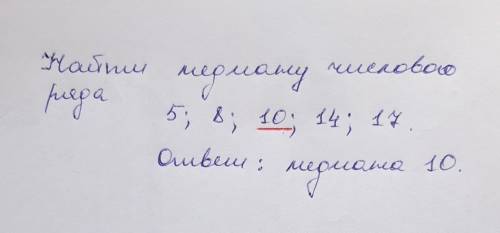 Найти медиану числового
ряда
5; 8; 10; 14; 17.
Ответ: медиана 10.